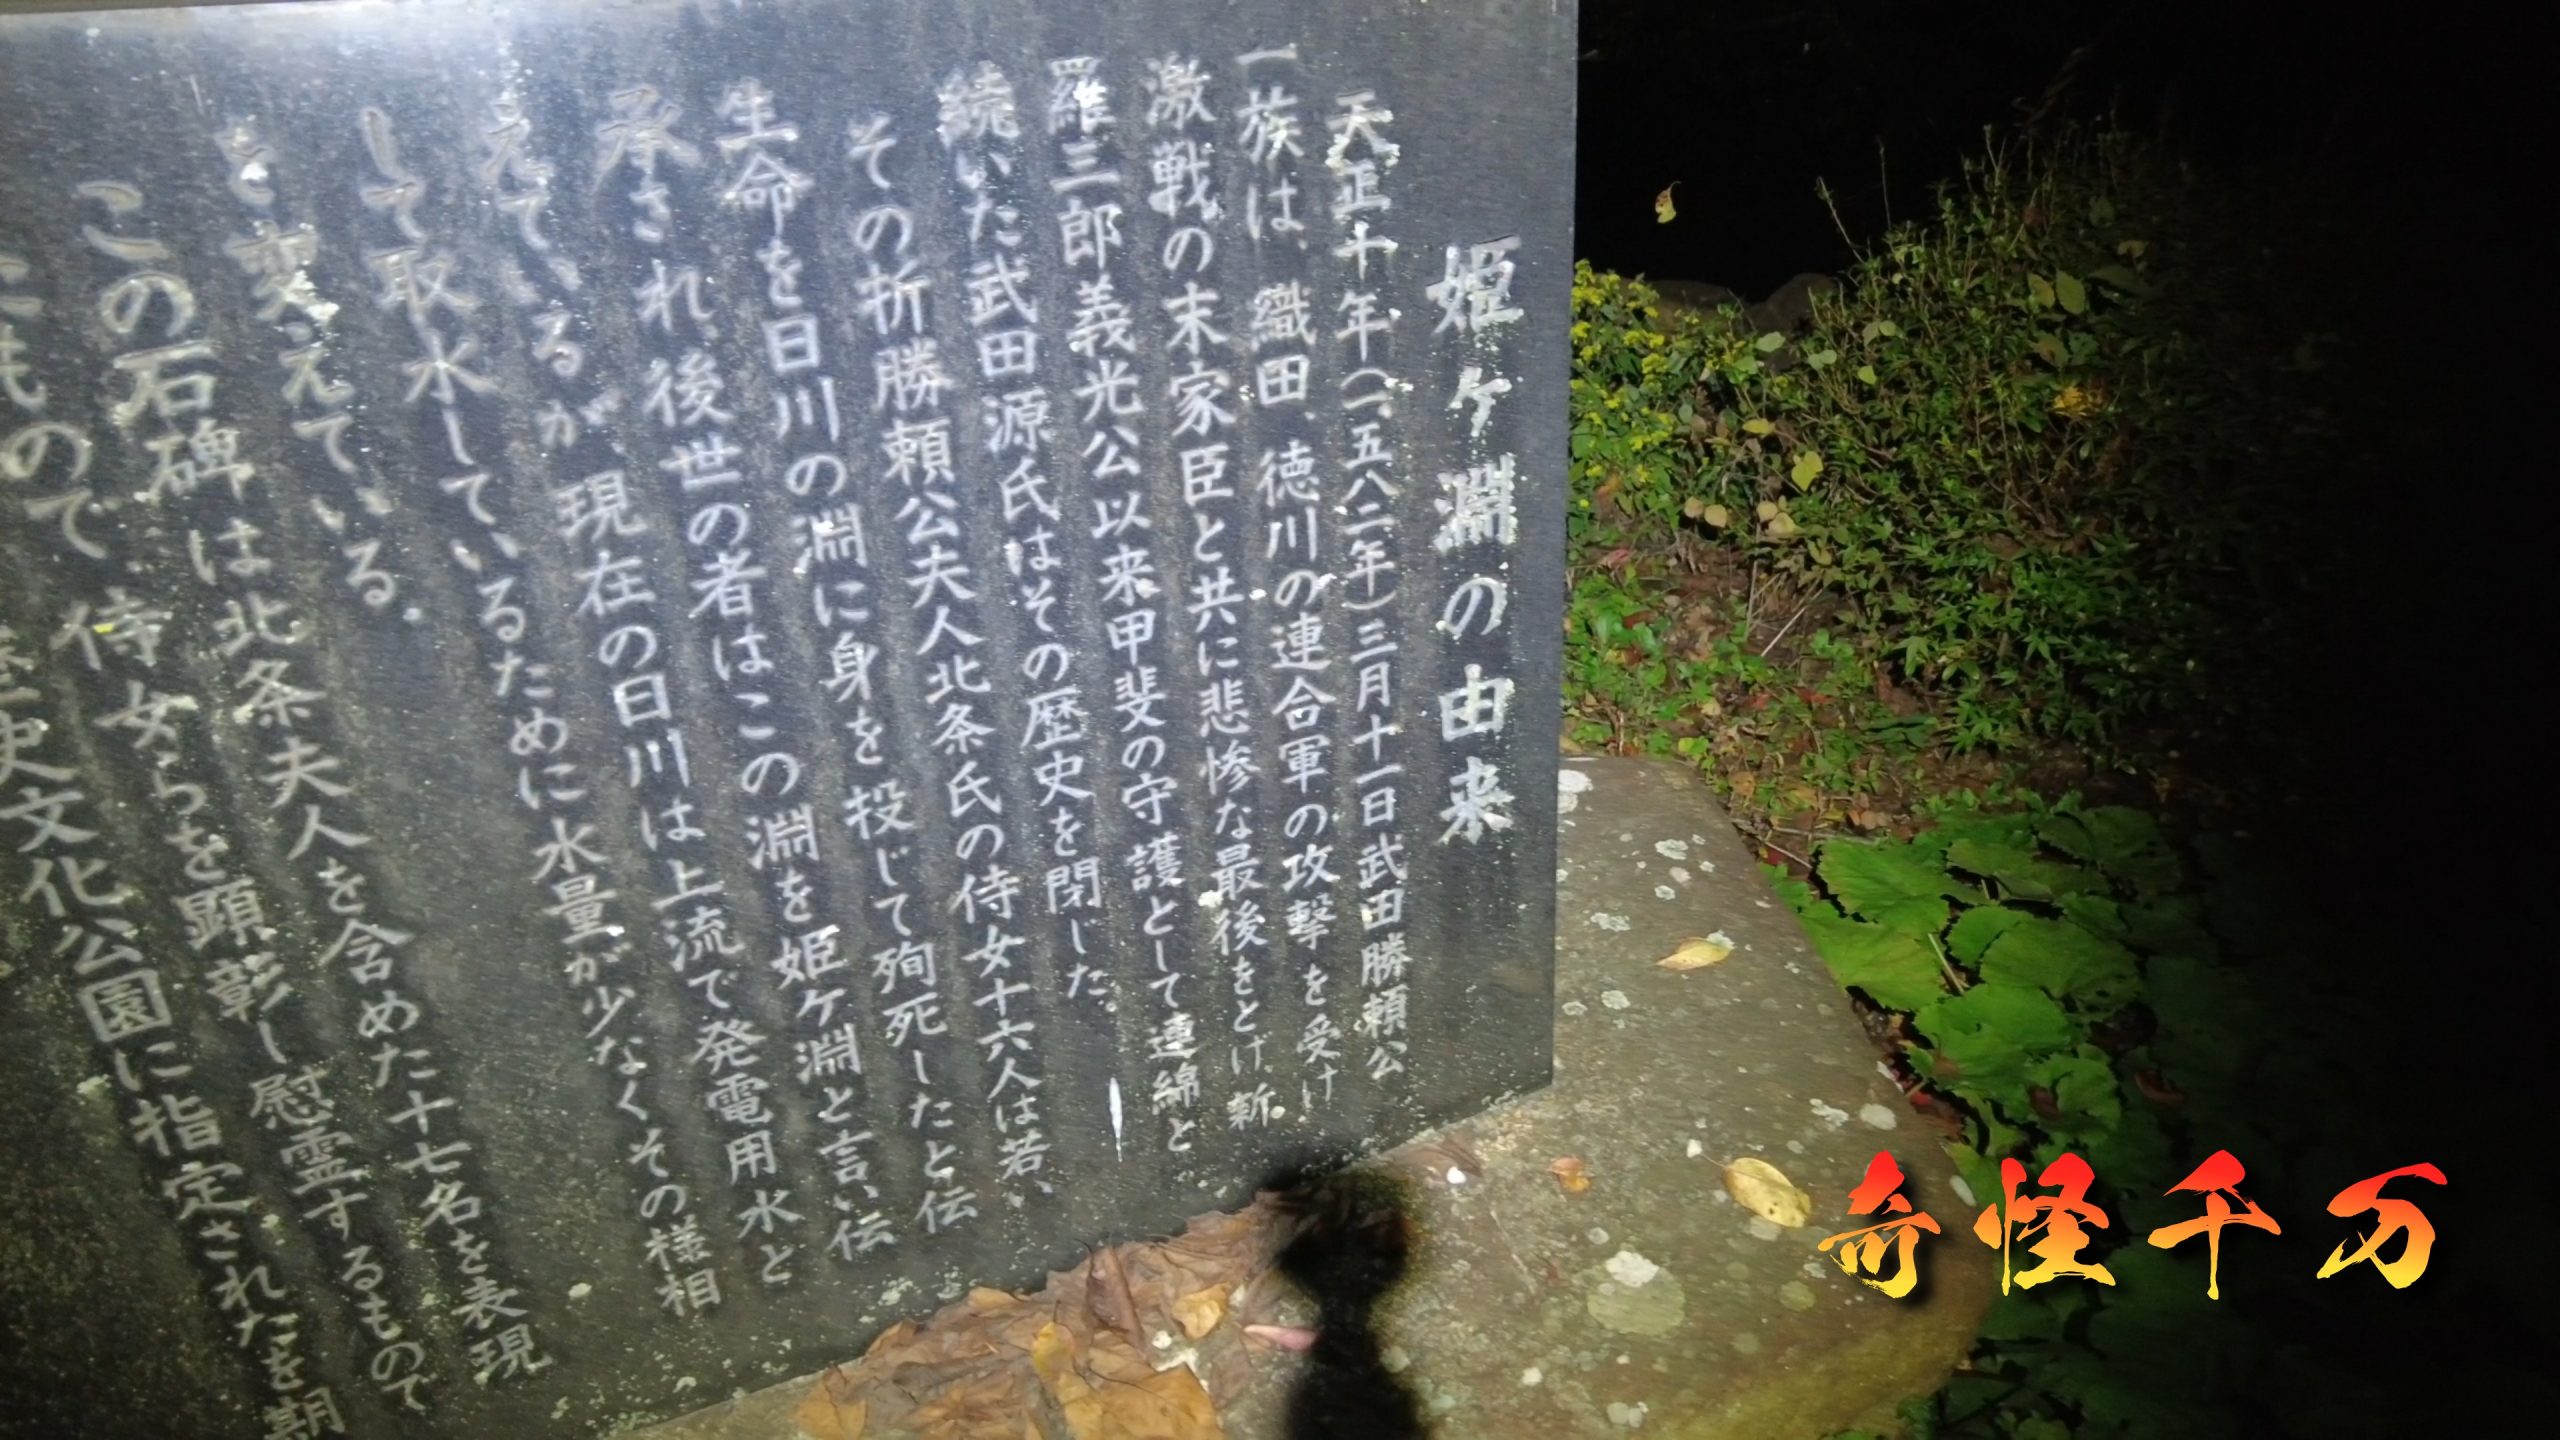 姫ヶ淵の由来
天正十年(一五八二年)三月十一日武田勝頼公
一族は、織田、徳川の連合軍の攻撃を受け
激戦の末家臣と共に悲惨な最後をとげ、新
羅三郎義光公以来甲斐の守護として連綿と
続いた武田源氏はその歴史を閉じた。
その折勝頼公夫人北条氏の侍女十六人は若い
生命を日川の淵に身を投じて殉死したと伝
承され、後世の者はこの淵を姫ケ淵と言い伝
えているが、現在の日川は上流で発電用水と
して取水しているために水量が少なくその様相
を変えている。
この石碑は北条夫人を含めた十七名を表現
したもので、侍女らを顕彰し慰霊するもので
歴史文化公園に指定されたを期
奇怪千万